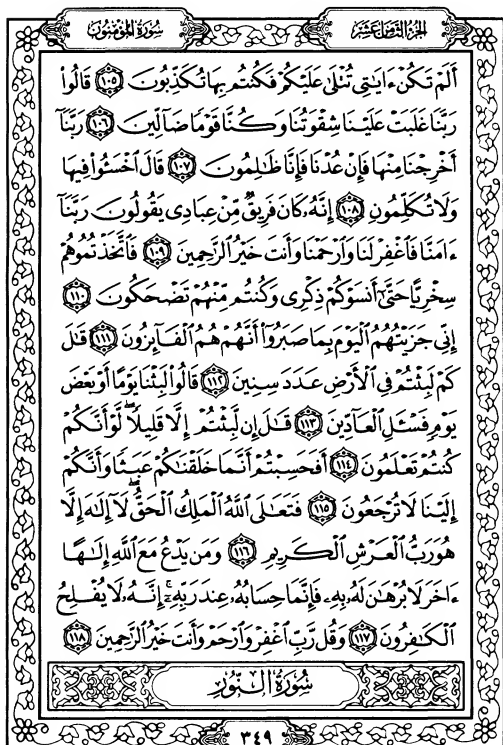 الجُزْءُ الثَّامِنَ عَشَرَ
سُورَةُ المُؤْمِنُونَ
أَلَمْ تَكُنْ ءَايَٰتِى تُتْلَىٰ عَلَيْكُمْ فَكُنتُم بِهَا تُكَذِّبُونَ ١٠٥ قَالُوا۟
رَبَّنَا غَلَبَتْ عَلَيْنَا شِقْوَتُنَا وَكُنَّا قَوْمًا ضَآلِّينَ ١٠٦ رَبَّنَآ
أَخْرِجْنَا مِنْهَا فَإِنْ عُدْنَا فَإِنَّا ظَٰلِمُونَ ١٠٧ قَالَ ٱخْسَـُٔوا۟ فِيهَا
وَلَا تُكَلِّمُونِ ١٠٨ إِنَّهُۥ كَانَ فَرِيقٌ مِّنْ عِبَادِى يَقُولُونَ رَبَّنَآ
ءَامَنَّا فَٱغْفِرْ لَنَا وَٱرْحَمْنَا وَأَنتَ خَيْرُ ٱلرَّٰحِمِينَ ١٠٩ فَٱتَّخَذْتُمُوهُمْ
سِخْرِيًّا حَتَّىٰٓ أَنسَوْكُمْ ذِكْرِى وَكُنتُم مِّنْهُمْ تَضْحَكُونَ ١١٠
إِنِّى جَزَيْتُهُمُ ٱلْيَوْمَ بِمَا صَبَرُوٓا۟ أَنَّهُمْ هُمُ ٱلْفَآئِزُونَ ١١١ قَٰلَ
كَمْ لَبِثْتُمْ فِى ٱلْأَرْضِ عَدَدَ سِنِينَ ١١٢ قَالُوا۟ لَبِثْنَا يَوْمًا أَوْ بَعْضَ
يَوْمٍ فَسْـَٔلِ ٱلْعَآدِّينَ ١١٣ قَٰلَ إِن لَّبِثْتُمْ إِلَّا قَلِيلًا لَّوْ أَنَّكُمْ
كُنتُمْ تَعْلَمُونَ ١١٤ أَفَحَسِبْتُمْ أَنَّمَا خَلَقْنَٰكُمْ عَبَثًا وَأَنَّكُمْ
إِلَيْنَا لَا تُرْجَعُونَ ١١٥ فَتَعَٰلَى ٱللَّهُ ٱلْمَلِكُ ٱلْحَقُّ لَآ إِلَٰهَ إِلَّا
هُوَ رَبُّ ٱلْعَرْشِ ٱلْكَرِيمِ ١١٦ وَمَن يَدْعُ مَعَ ٱللَّهِ إِلَٰهًا
ءَاخَرَ لَا بُرْهَٰنَ لَهُۥ بِهِۦ فَإِنَّمَا حِسَابُهُۥ عِندَ رَبِّهِۦٓ إِنَّهُۥ لَا يُفْلِحُ
ٱلْكَٰفِرُونَ ١١٧ وَقُل رَّبِّ ٱغْفِرْ وَٱرْحَمْ وَأَنتَ خَيْرُ ٱلرَّٰحِمِينَ ١١٨
سُورَةُ النُّورِ
٣٤٩